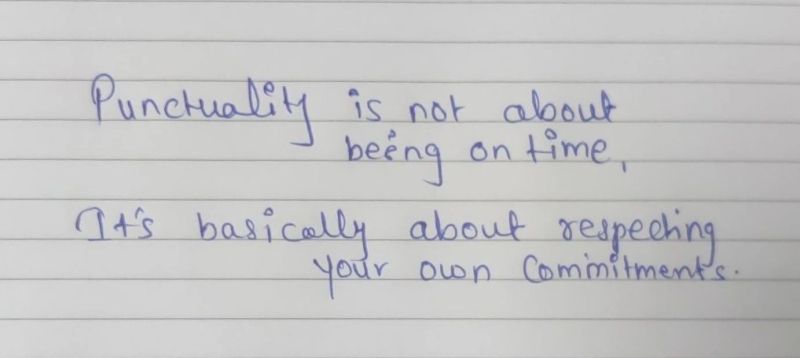 Punctuality is not about
being on time,
It's basically about respecting
your own Commitments.